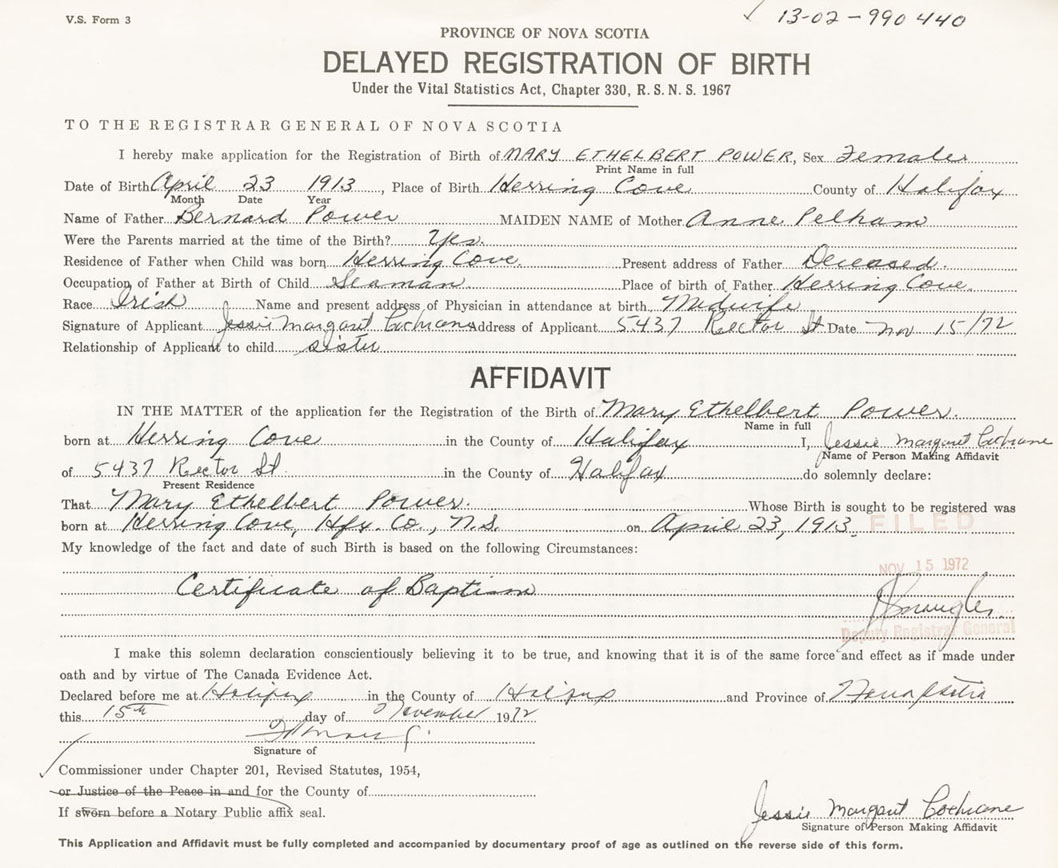 V.S. Form 3
✓ 13-02-990440
PROVINCE OF NOVA SCOTIA
DELAYED REGISTRATION OF BIRTH
Under the Vital Statistics Act, Chapter 330, R. S. N. S. 1967
TO THE REGISTRAR GENERAL OF NOVA SCOTIA
I hereby make application for the Registration of Birth of MARY ETHELBERT POWER, Sex Female
Print Name in full
Date of Birth April 23 1913, Place of Birth Herring Cove County of Halifax
Month Date Year
Name of Father Bernard Power MAIDEN NAME of Mother Anne Pelham
Were the Parents married at the time of the Birth? Yes.
Residence of Father when Child was born Herring Cove. Present address of Father Deceased.
Occupation of Father at Birth of Child Seaman Place of birth of Father Herring Cove.
Race Irish Name and present address of Physician in attendance at birth Midwife
Signature of Applicant Jessie Margaret Cochrane Address of Applicant 5437 Rector St Date Nov 15/72
Relationship of Applicant to child sister
AFFIDAVIT
IN THE MATTER of the application for the Registration of the Birth of Mary Ethelbert Power.
Name in full
born at Herring Cove in the County of Halifax I, Jessie Margaret Cochrane
Name of Person Making Affidavit
of 5437 Rector St. in the County of Halifax do solemnly declare:
Present Residence
That Mary Ethelbert Power. Whose Birth is sought to be registered was
born at Herring Cove, Hfx. Co., N.S. on April 23, 1913.
FILED
My knowledge of the fact and date of such Birth is based on the following Circumstances:
NOV 15 1972
Certificate of Baptism
Deputy Registrar General
I make this solemn declaration conscientiously believing it to be true, and knowing that it is of the same force and effect as if made under
oath and by virtue of The Canada Evidence Act.
Declared before me at Halifax in the County of Halifax and Province of Nova Scotia
this 15th day of November 1972
Signature of
Commissioner under Chapter 201, Revised Statutes, 1954,
or Justice of the Peace in and for the County of
If sworn before a Notary Public affix seal.
Jessie Margaret Cochrane
Signature of Person Making Affidavit
This Application and Affidavit must be fully completed and accompanied by documentary proof of age as outlined on the reverse side of this form.